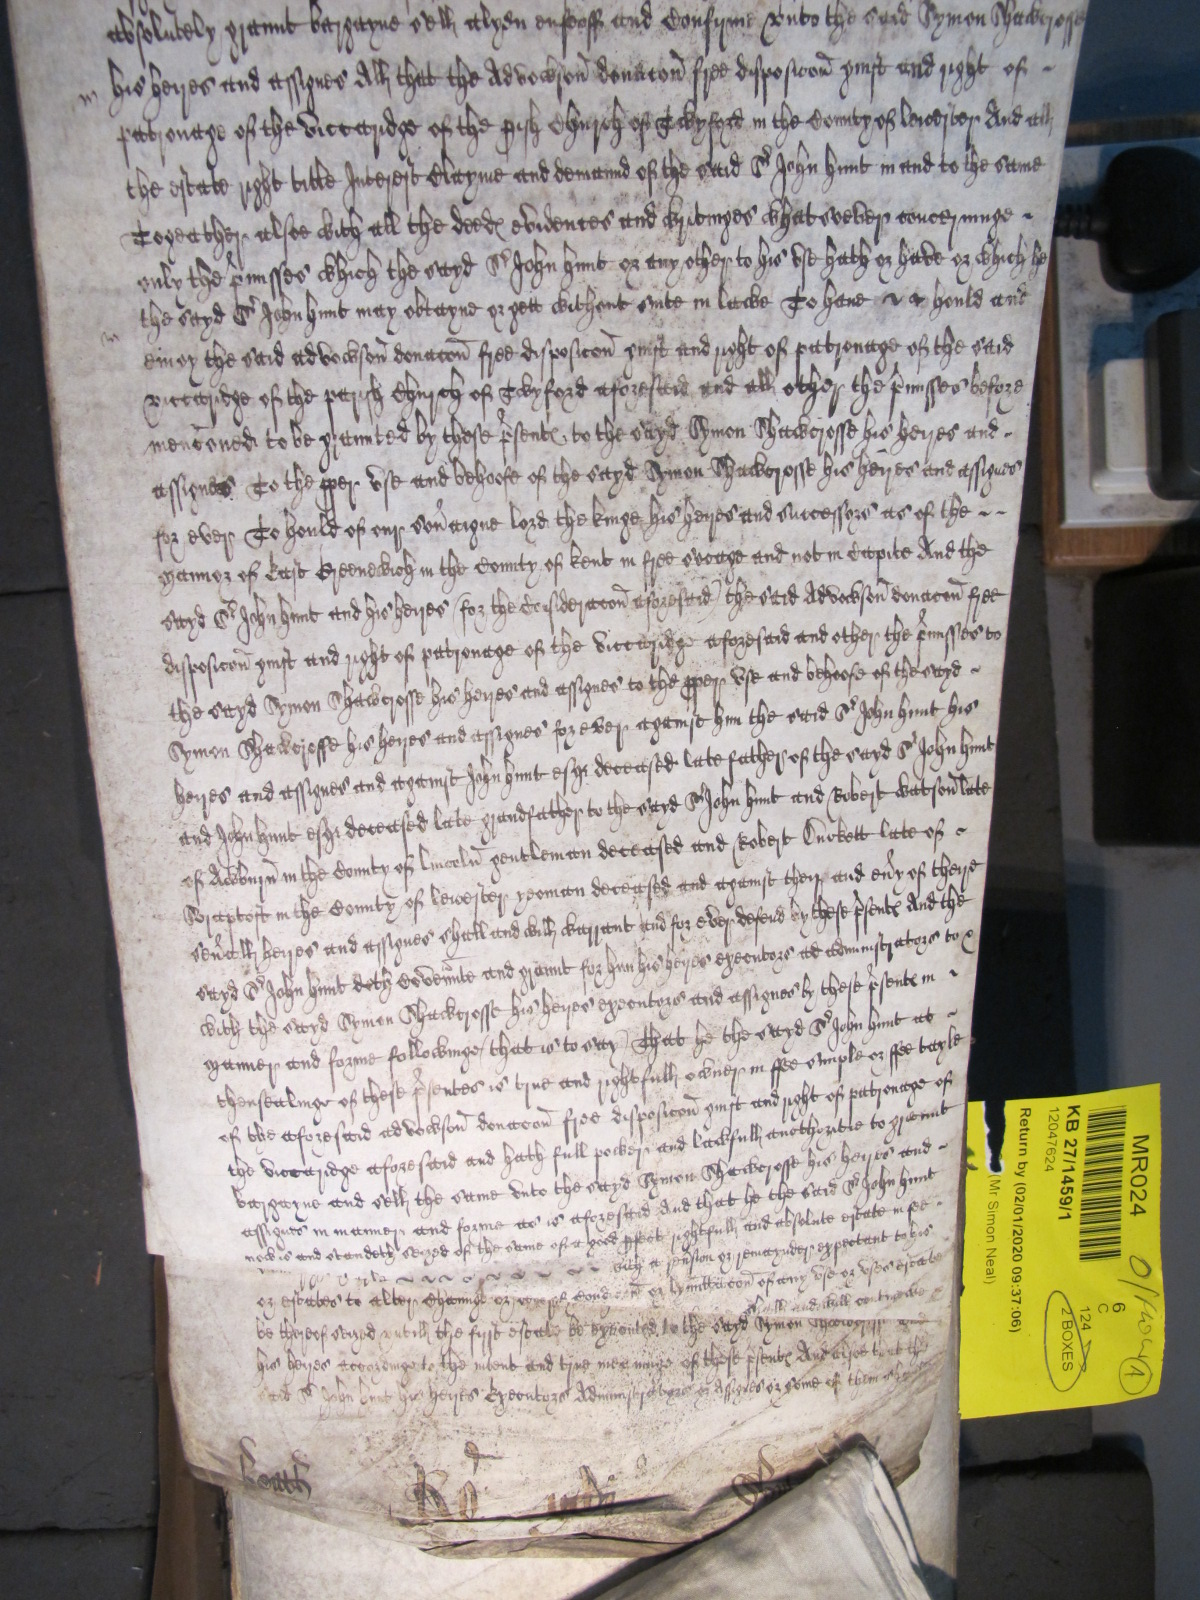 absolutely graunt bargayne sell alyen enfeoff and Confirme vnto the said Symon Shawcrosse
his heires and assignes All that the Advowson donacon free disposicon guift and right of ~
patronage of the viccaridge of the pish Church of Twyford in the County of Leicester And all
the estate right title Interest Clayme and demaund of the said Sr John Hunt in and to the same
Together alsoe with all the deeds evidences and writinges whatsoever concerninge ~
only the pmisses which the sayd Sr John Hunt or any other to his vse hath or have or which he
the sayd Sr John Hunt may obtayne or gett without suite in lawe To have hould and
enioy the said advowson donacon free disposicon guift and right of patronage of the said
viccaridge of the parish Church of Twyford aforesaid and all other the pmisses before
mencioned to be graunted by these psents to the sayd Symon Shawcrosse his heyres and ~
assignes To the pper vse and behoofe of the sayd Symon Shawcrosse his heyres and assignes
for ever To hould of our soveraigne lord the kinge his heyres and successors as of the ~ ~
mannor of East Greenewich in the County of Kent in free socage and not in Capite And the
sayd Sr John Hunt and his heyres (for the Consideracon aforesaid) the said Advowson donacon free
disposicon guift and right of patronage of the viccaridge aforesaid and other the pmisses to
the sayd Symon Shawcrosse his heyres and assignes to the pper vse and behoofe of the sayd ~
Symon Shawcrosse his heyres and assignes for ever against him the said Sr John Hunt his
heyres and assignes and against John Hunt esqr deceased late father of the sayd Sr John Hunt
and John Hunt esqr deceased late grandfather to the sayd Sr John Hunt and Robert Watson late
of in the County of Lincoln gentleman deceased and Robert late of ~
Scraptoft in the County of Leicester yeoman deceased and against their and evy of theire
sevall heyres and assignes shall and will warrant and for ever defend by these psents And the
sayd Sr John Hunt doth Covennte and graunt for him his heyres executors ad administrators to &
with the sayd Symon Shawcrosse his heyres executors and assignes by these psents in ~
manner and forme followinge (that is to say) That he the sayd Sr John Hunt at ~
thensealinge of these psentes is true and rightfull owner in ffee simple or ffee tayle
of the aforesaid advowson donacon free disposicon guift and right of patronage of
the viccaridge aforesaid and hath full power and lawfull authoritie to graunt
bargayne and sell the same vnto the sayd Symon Shawcrosse his heyres and ~
assignes in manner and forme as is aforesaid And that he the said Sr John Hunt
now is and standeth seized of the same of a good pfect rightfull and absolute estate in fee ~
revsion or remaynder expectant to his
or estates to alter Change or Condicon or lymittacon of any vse or vses estate
be thereof seized untill the first estate be executed to the sayd Symon Shawcrosse
his heyres accordinge to the intent and true meaninge of these psents And alsoe that the
said Sr John Hunt his heyres Executors Administrators or Assignes or some of them
MR024
KB 27/1459/1
12047624
Return by (02/01/2020 09:37:06)
(Mr Simon Neal)
6
C
124
2 BOXES